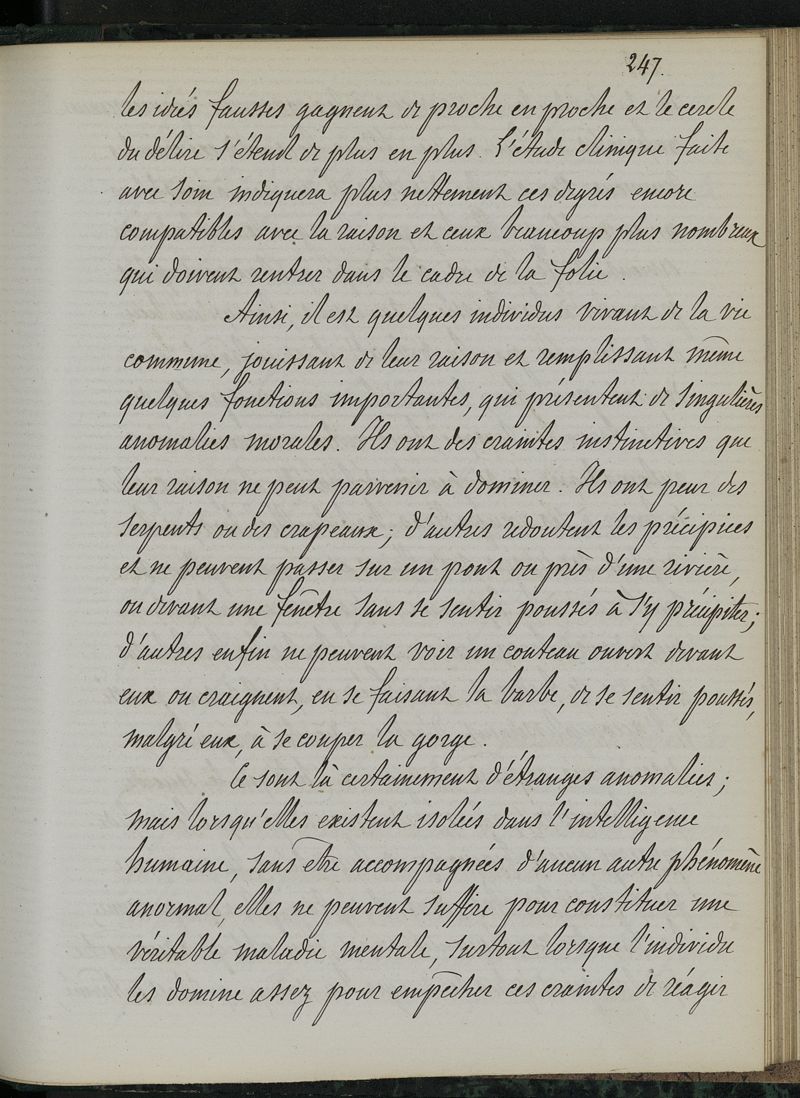 247.
les idées fausses gagnent de proche en proche et le cercle
du délire s'étend de plus en plus. L'étude clinique faite
avec soin indiquera plus nettement ces degrés encore
compatibles avec la raison et ceux beaucoup plus nombreux
qui doivent rentrer dans le cadre de la folie.
Ainsi, il est quelques individus vivant de la vie
commune, jouissant de leur raison et remplissant même
quelques fonctions importantes, qui présentent de singulières
anomalies morales. Ils ont des craintes instinctives que
leur raison ne peut parvenir à dominer. Ils ont peur des
serpents ou des crapeaux; d'autres redoutent les précipices
et ne peuvent passer sur un pont ou près d'une rivière,
ou devant une fenêtre sans se sentir poussés à s'y précipiter;
d'autres enfin ne peuvent voir un couteau ouvert devant
eux ou craignent, en se faisant la barbe, de se sentir poussés,
malgré eux, à se couper la gorge.
Ce sont là certainement d'étranges anomalies;
mais lorsqu'elles existent isolées dans l'intelligence
humaine, sans être accompagnées d'aucun autre phénomène
anormal, elles ne peuvent suffire pour constituer une
véritable maladie mentale, surtout lorsque l'individu
les domine assez pour empêcher ces craintes de réagir